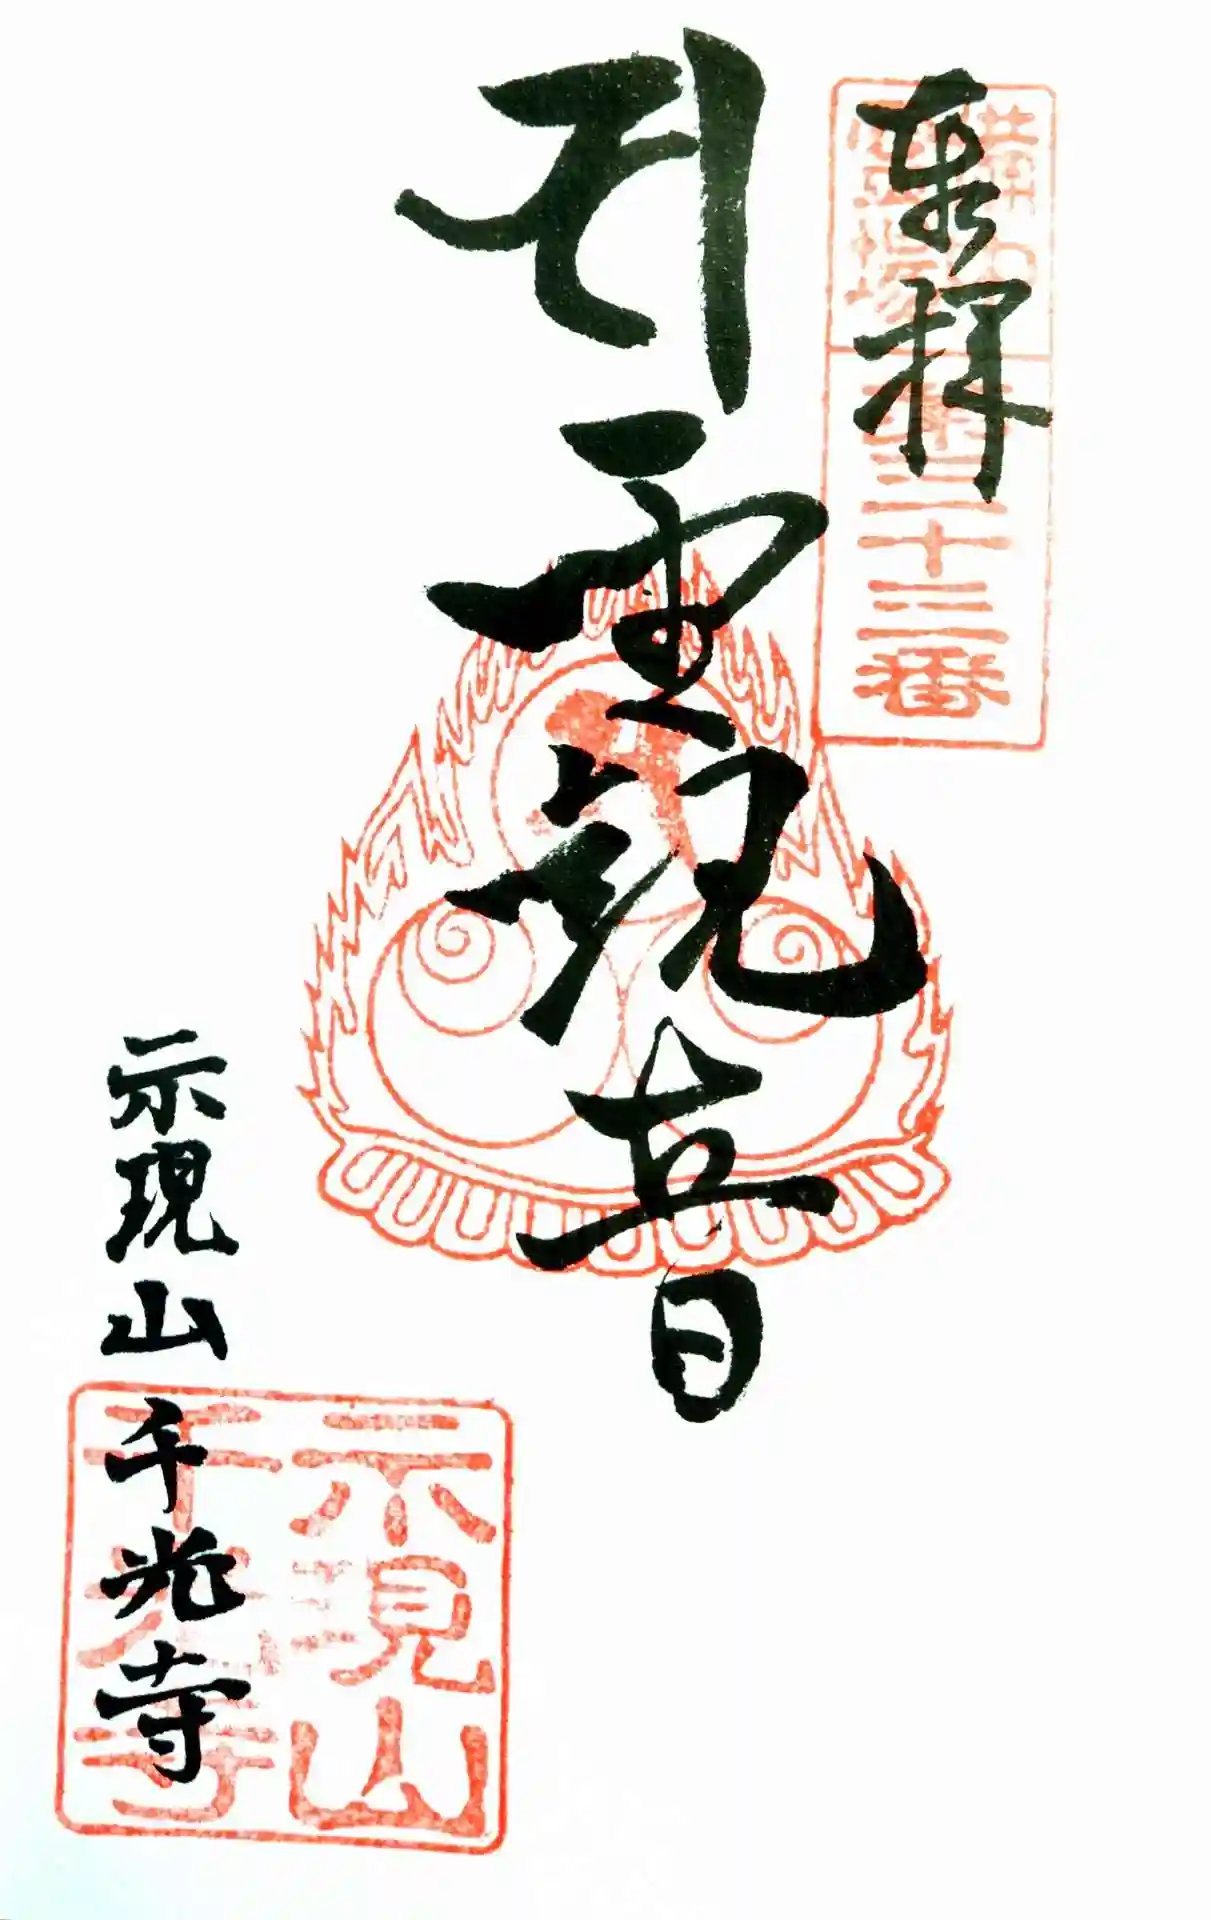 奉拝
霊場
第三十三番
聖観音
示現山千光寺
示現山
千光寺